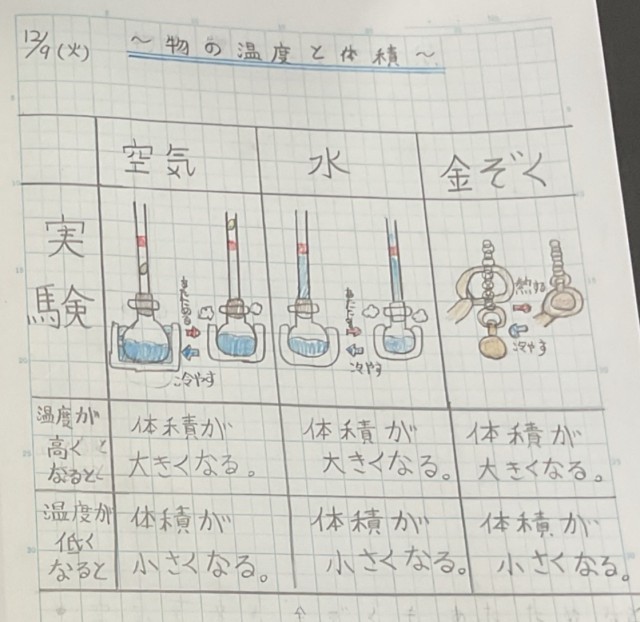 12/9(火)
～物の温度と体積～
空気 水 金ぞく
実験
あたためる
冷やす
あたためる
冷やす
熱する
冷やす
温度が
高く
なると
体積が
大きくなる。
体積が
大きくなる。
体積が
大きくなる。
温度が
低く
なると
体積が
小さくなる。
体積が
小さくなる。
体積が
小さくなる。